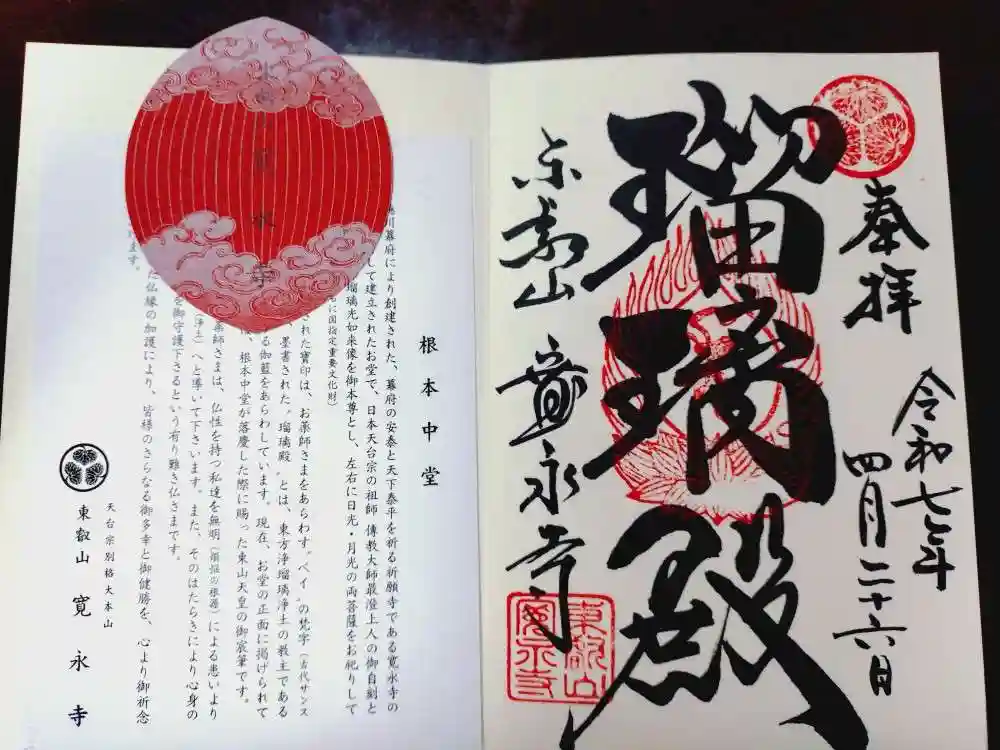 奉拝
令和七年
四月二十六日
瑠璃殿
東叡山 寛永寺
東叡山
寛永寺
根本中堂
川幕府により創建された、幕府の安泰と天下泰平を祈る祈願寺である寛永寺の
して建立されたお堂で、日本天台宗の祖師 傳教大師最澄上人の御自刻と
瑠璃光如来像を御本尊とし、左右に日光・月光の両菩薩をお祀りして
に国指定重要文化財)
された寶印は、お薬師さまをあらわす〝ベイ〟の梵字(古代サンス
、墨書された〝瑠璃殿〟とは、東方浄瑠璃浄土の教主である
る伽藍をあらわしています。現在、お堂の正面に掲げられて
、根本中堂が落慶した際に賜った東山天皇の御宸筆です。
薬師さまは、仏性を持つ私達を無明(煩悩の根源)による患いより
(浄土)へと導いて下さいます。また、そのはたらきにより心身の
を御守護下さるという有り難き仏さまです。
仏縁の加護により、皆様のさらなる御多幸と御健勝を、心より御祈念
ます。
天台宗別格大本山
東叡山 寛永寺